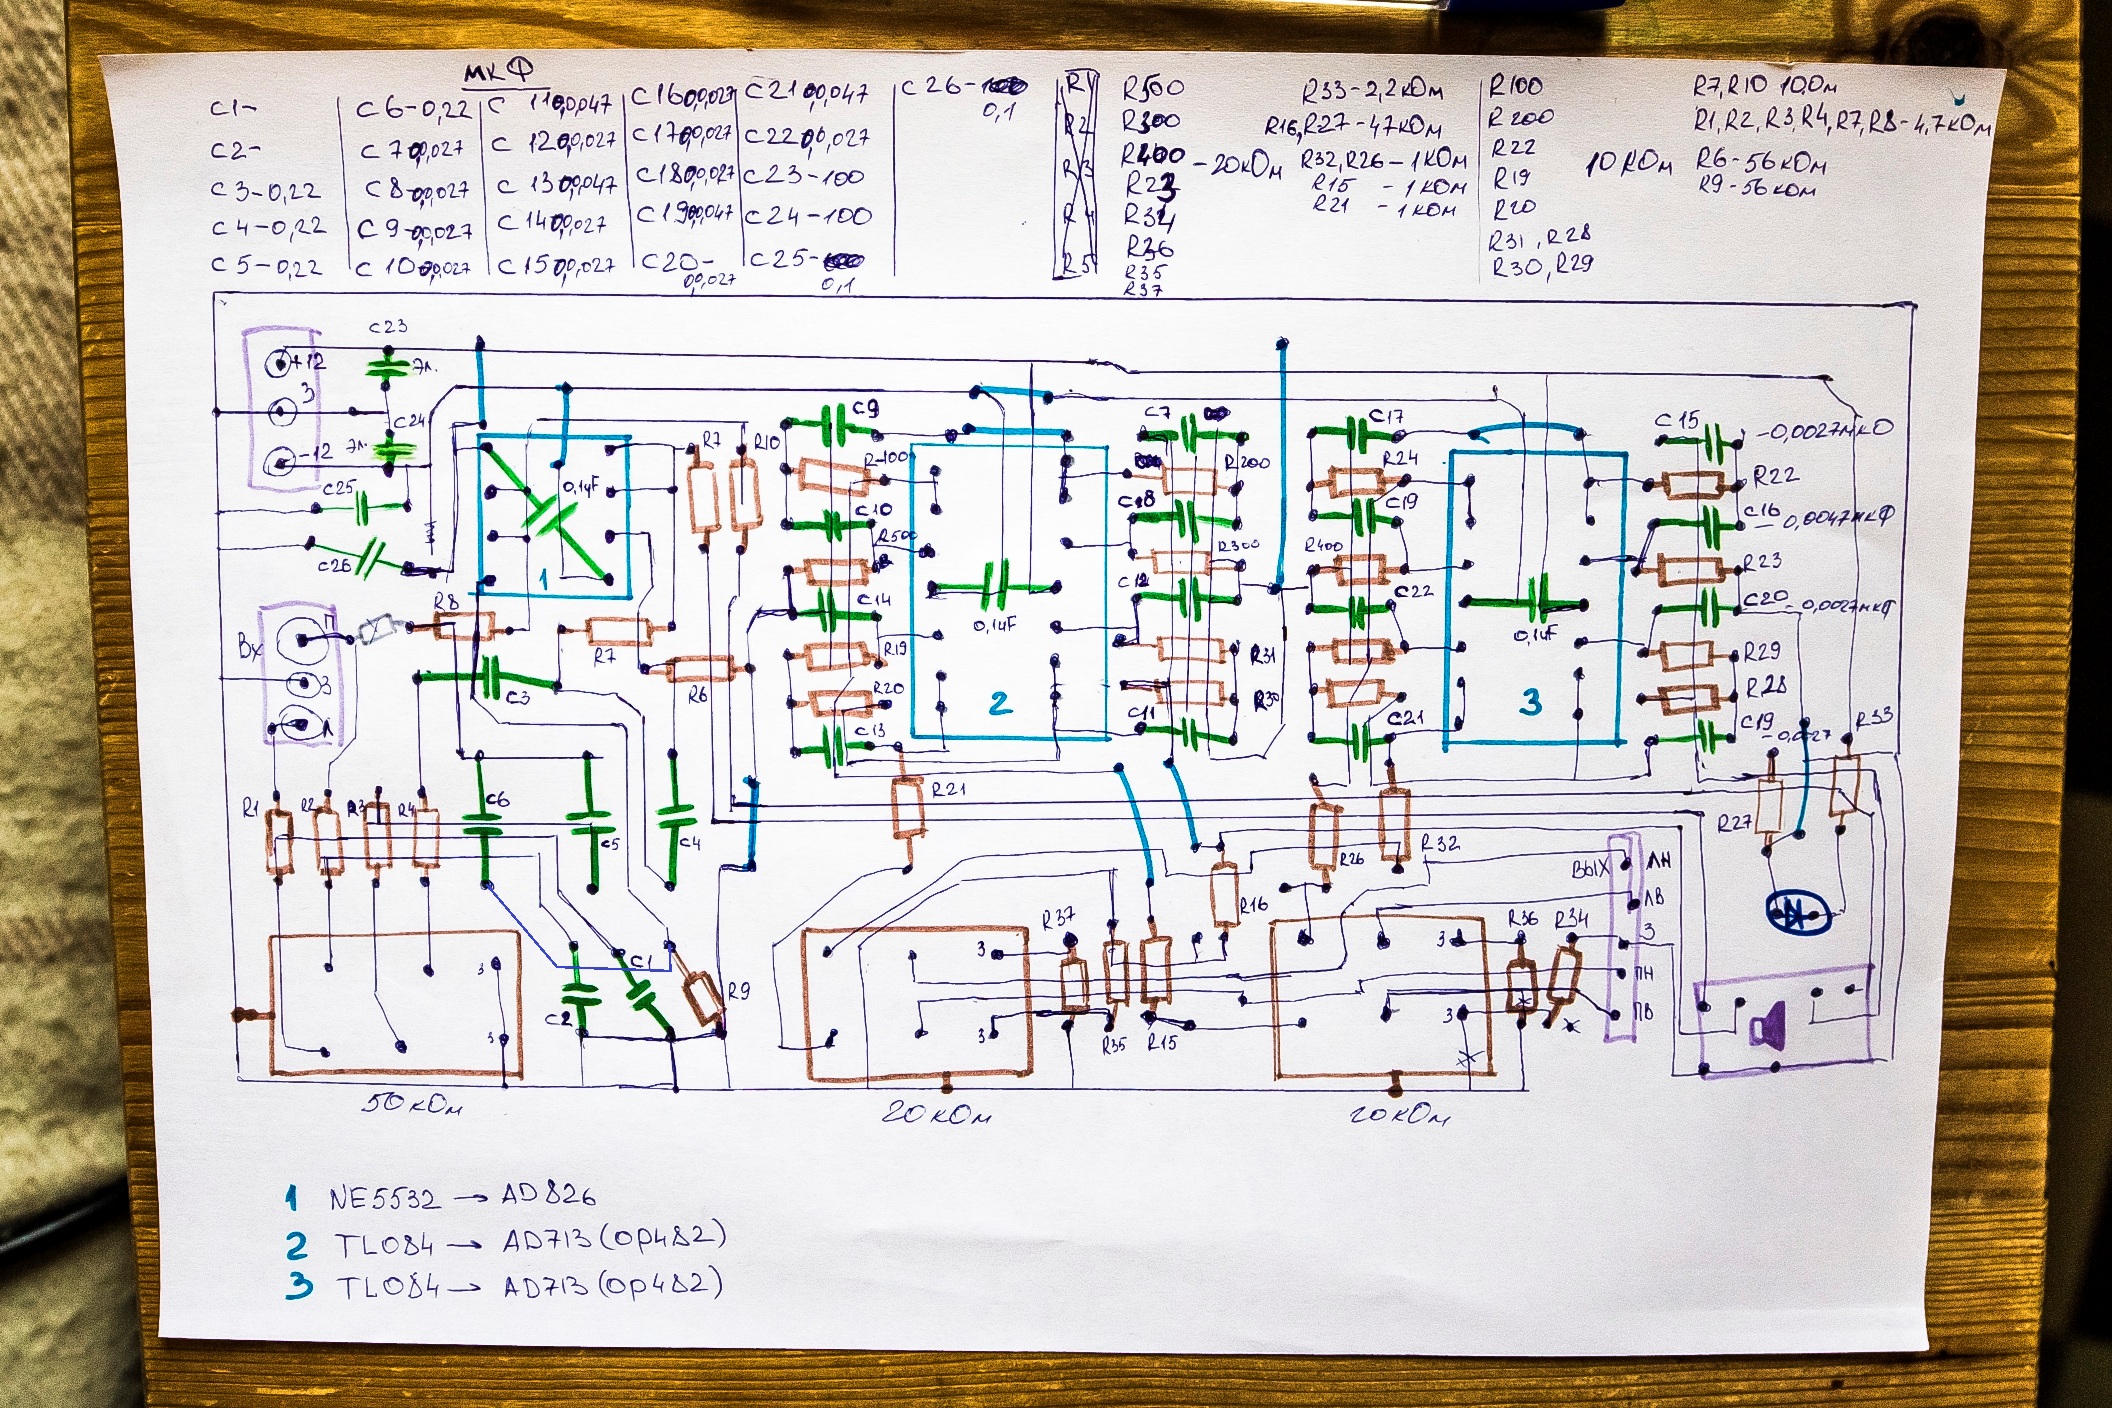 мкФ
C1-
C2-
C3-0,22
C4-0,22
C5-0,22
C6-0,22
C7 0,027
C8-0,027
C9-0,027
C10 0,027
C 11 0,047
C 12 0,027
C 13 0,047
C14 0,027
C15 0,027
C16 0,027
C17 0,027
C18 0,027
C19 0,047
C20-
0,027
C21 0,047
C22 0,027
C23-100
C24-100
C25-
0,1
C26-
0,1
R1
R2
R3
R4
R5
R500
R300
R400 -20кОм
R23
R34
R36
R35
R37
R33-2,2кОм
R16,R27-47кОм
R32,R26-1кОм
R15 -1кОм
R21 -1кОм
R100
R200
R22
R19
R20
R31, R28
R30, R29
10кОм
R7,R10 10Ом
R1,R2,R3,R4,R7,R8-4,7кОм
R6-56кОм
R9-56кОм
C23
+12
Эл.
3
C24
Эл.
-12
C25
C26
0,1uF
1
R7
R10
C9
R100
C10
R500
C14
R19
R20
C13
0,1uF
2
C7
R200
C18
R300
C12
R31
R30
C11
C17
R24
C19
R400
C22
C21
0,1uF
3
C15 -0,0027мкФ
R22
C16 - 0,0047мкФ
R23
C20 - 0,0027мкФ
R29
R28
C19
-0,027
R33
Вх
П
3
Л
R8
C3
R7
R6
R1
R2
R3
R4
C6
C5
C4
R21
R26
R32
R27
R16
ВЫХ
ЛН
ЛВ
3
ПН
ПВ
3
3
C2
C1
R9
3
3
R37
R35
R15
3
3
R36
R34
50кОм
20кОм
20кОм
1 NE5532 → AD826
2 TL084 → AD713 (op482)
3 TL084 → AD713 (op482)